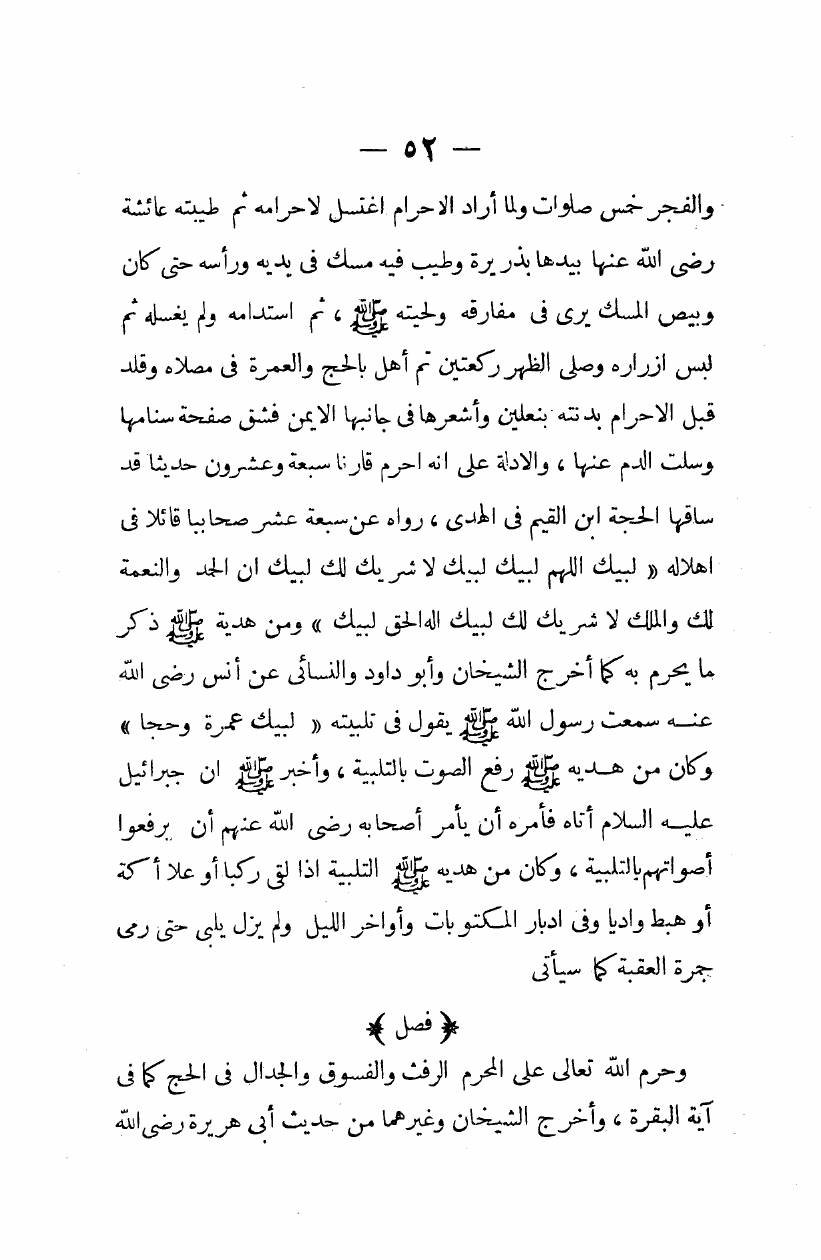 — ٥٢ —
والفجر خمس صلوات ولما أراد الاحرام اغتسل لاحرامه ثم طيبته عائشة
رضى الله عنها بيدها بذريرة وطيب فيه مسك فى يديه ورأسه حتى كان
وبيص المسك يرى فى مفارقه ولحيته ﷺ ، ثم استدامه ولم يغسله ثم
لبس ازراره وصلى الظهر ركعتين ثم أهل بالحج والعمرة فى مصلاه وقلد
قبل الاحرام بدنته بنعلين وأشعرها فى جانبها الايمن فشق صفحة سنامها
وسلت الدم عنها ، والادلة على انه احرم قارنا سبعة وعشرون حديثا قد
ساقها الحجة ابن القيم فى الهدى ، رواه عن سبعة عشر صحابيا قائلا فى
اهلاله « لبيك اللهم لبيك لبيك لا شريك لك لبيك ان الحمد والنعمة
لك والملك لا شريك لك لبيك اله الحق لبيك » ومن هدية ﷺ ذكر
ما يحرم به كما أخرج الشيخان وأبو داود والنسائى عن أنس رضى الله
عنه سمعت رسول الله ﷺ يقول فى تلبيته « لبيك عمرة وحجا »
وكان من هديه ﷺ رفع الصوت بالتلبية ، وأخبر ﷺ ان جبرائيل
عليه السلام أتاه فأمره أن يأمر أصحابه رضى الله عنهم أن يرفعوا
أصواتهم بالتلبية ، وكان من هديه ﷺ التلبية اذا لقى ركبا أو علا أكمة
أو هبط واديا وفى ادبار المكتوبات وأواخر الليل ولم يزل يلبى حتى رمى
جمرة العقبة كما سيأتى
﴿ فصل ﴾
وحرم الله تعالى على المحرم الرفث والفسوق والجدال فى الحج كما فى
آية البقرة ، وأخرج الشيخان وغيرهما من حديث أبى هريرة رضى الله